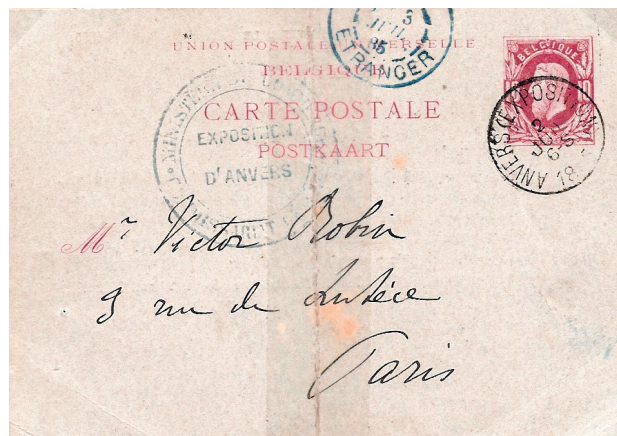 3
JUIL
85
ETRANGER
UNION POSTALE UNIVERSELLE
BELGIQUE
CARTE POSTALE
POSTKAART
BELGIQUE
ANVERS (EXPOSITION)
18
EXPOSITION
D'ANVERS
Mr Victor Robin
9 rue de Lutèce
Paris